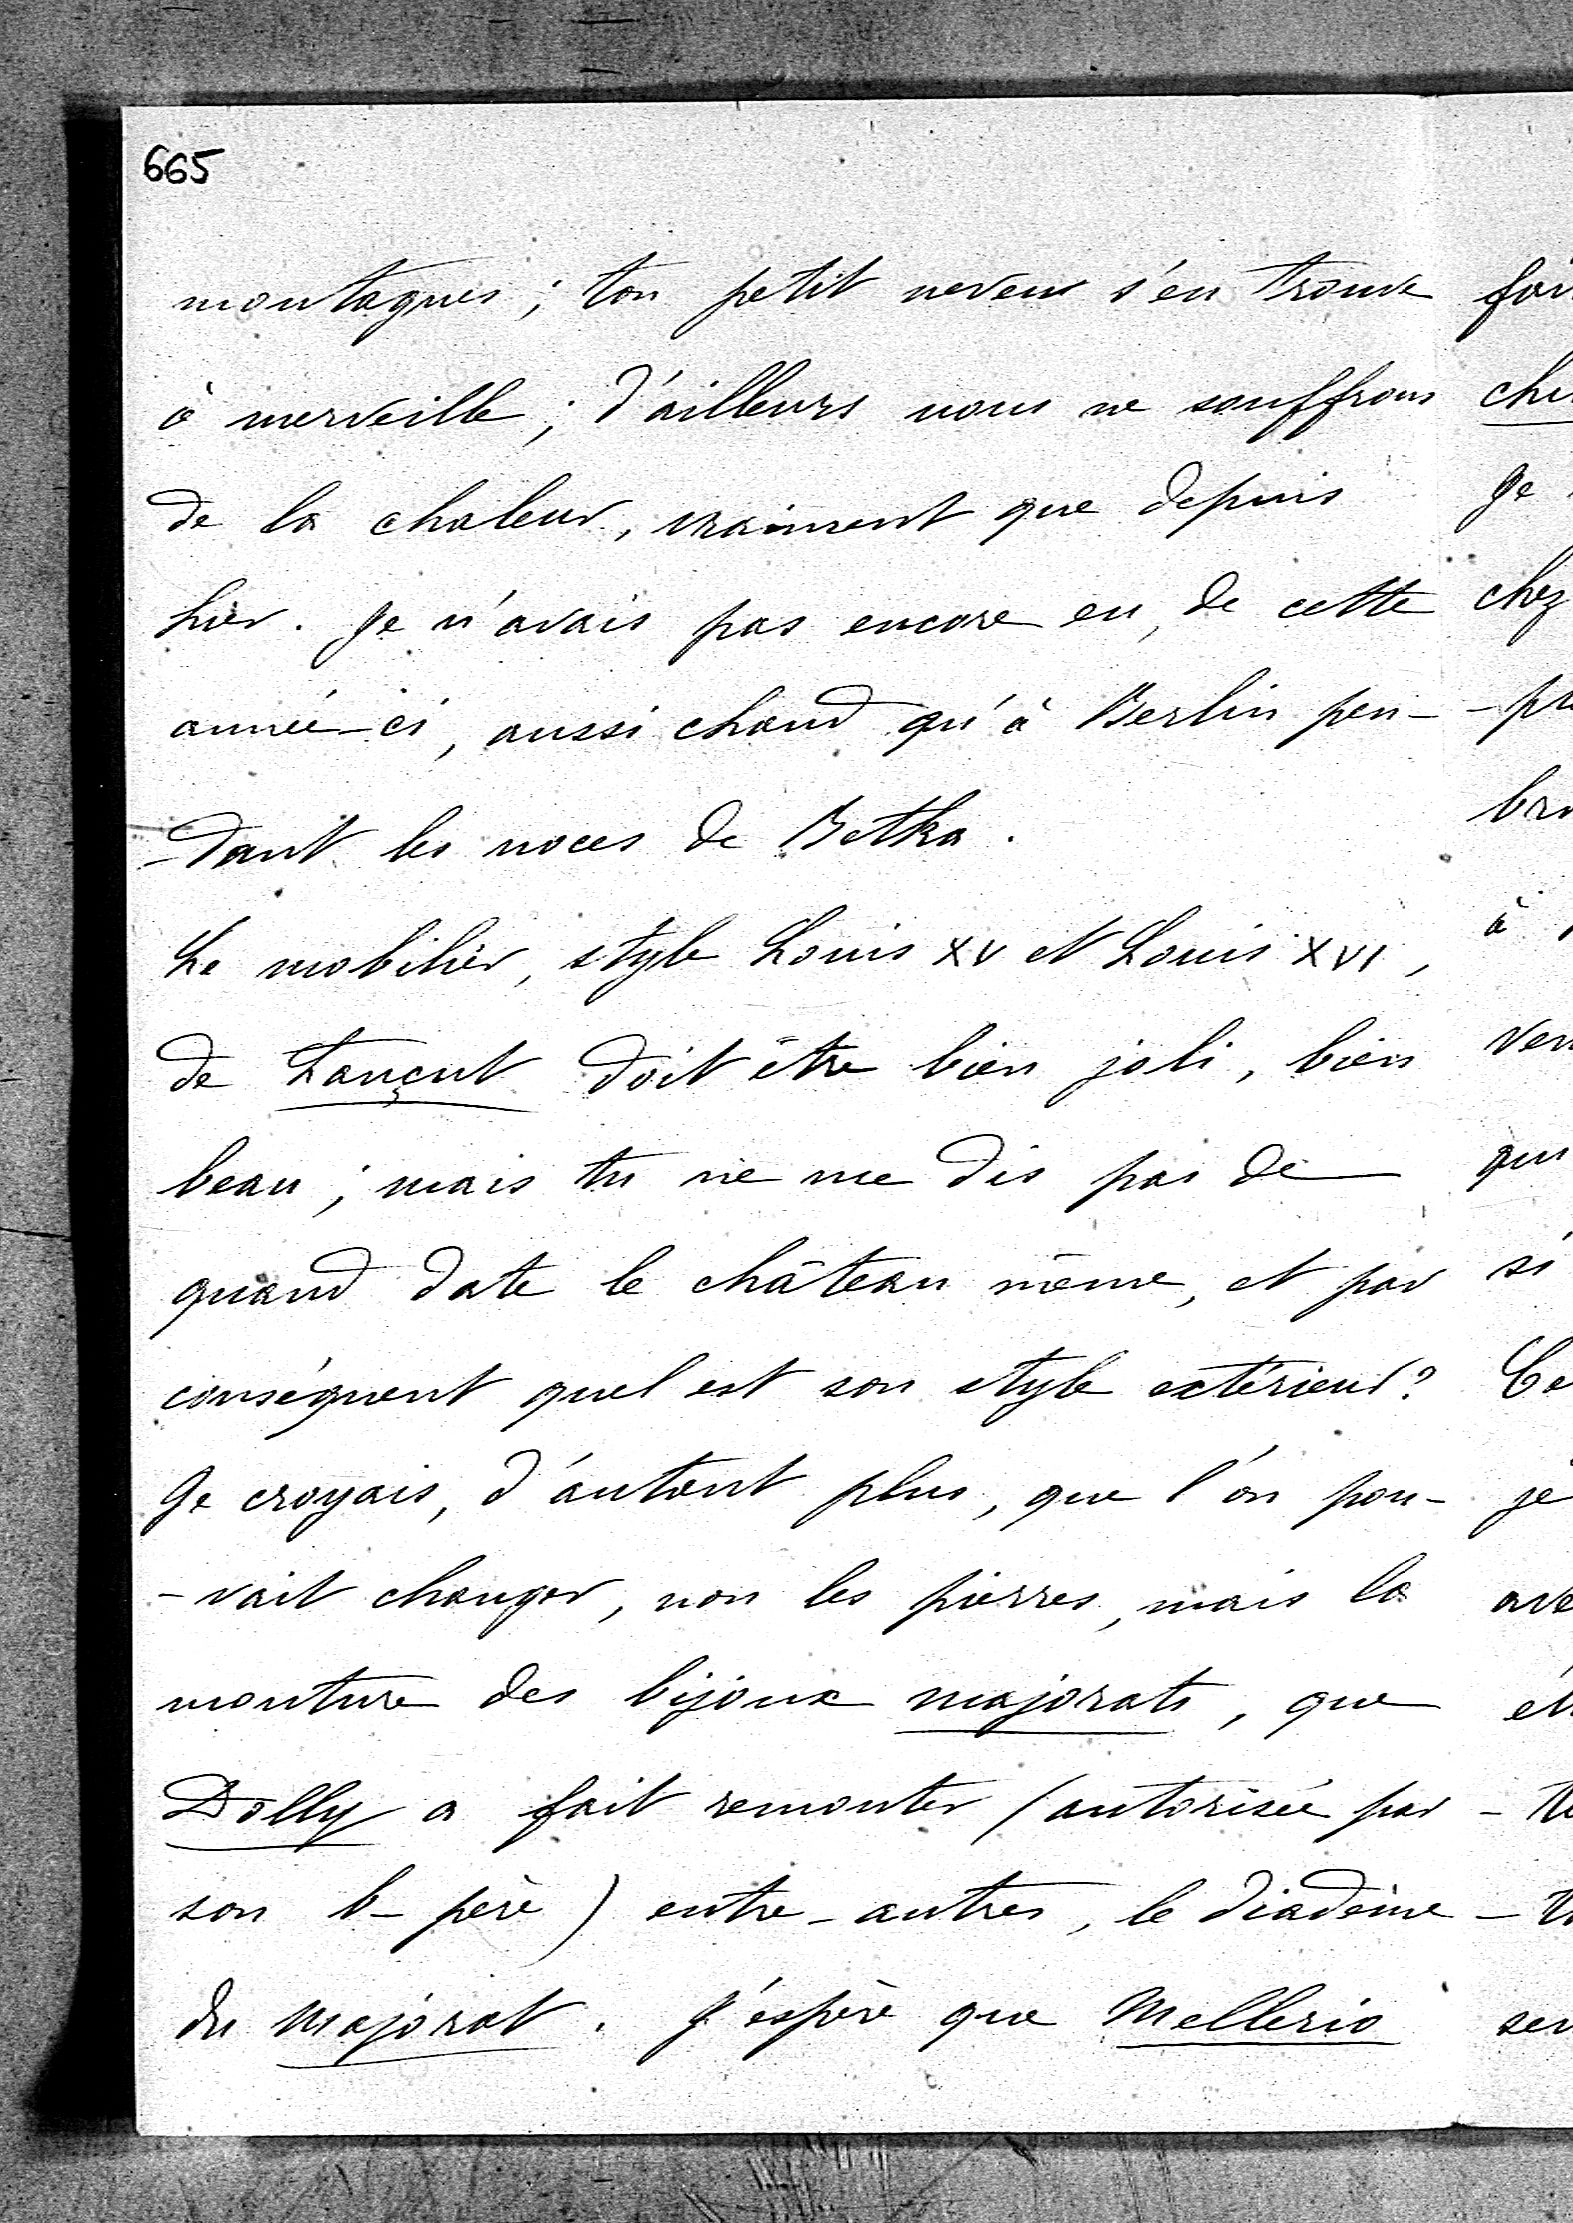 665
montagnes ; ton petit neveu s'en trouve
à merveille ; d'ailleurs nous ne souffrons
de la chaleur, vraiment que depuis
hier. Je n'avais pas encore eu, de cette
année-ci, aussi chaud qu'à Berlin pen-
-dant les noces de Betka.
Le mobilier, style Louis XV et Louis XVI,
de Lançut doit être bien joli, bien
beau ; mais tu ne me dis pas de
quand date le château même, et par
conséquent quel est son style extérieur ?
Je croyais, d'autant plus, que l'on pou-
-vait changer, non les pierres, mais la
monture des bijoux majorats, que
Dolly a fait remonter (autorisée par
son b-père) entre-autres, le diadème
du majorat. J'espère que Mellerio
chez
à
si
Ce
je